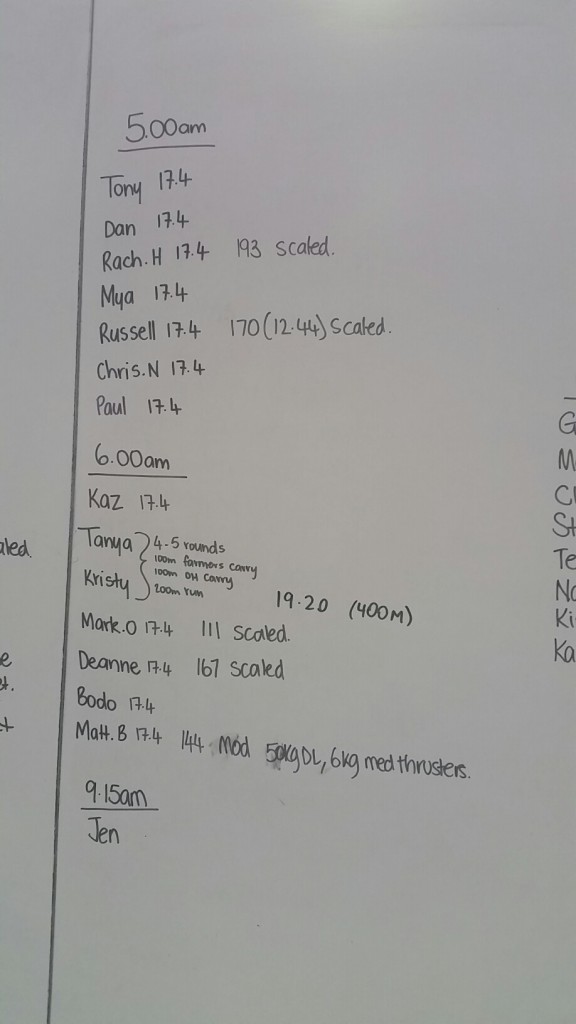 5.00am
Tony 17.4
Dan 17.4
Rach.H 17.4 193 scaled.
Mya 17.4
Russell 17.4 170 (12.44) Scaled.
Chris.N 17.4
Paul 17.4
6.00am
Kaz 17.4
Tanya } 4-5 rounds
100m farmers carry
Kristy 100m OH carry
200m run 19.20 (400M)
Mark.O 17.4 111 scaled.
Deanne 17.4 167 scaled
Bodo 17.4
Matt.B 17.4 144 Mod 50kg DL, 6kg med thrusters.
9.15am
Jen